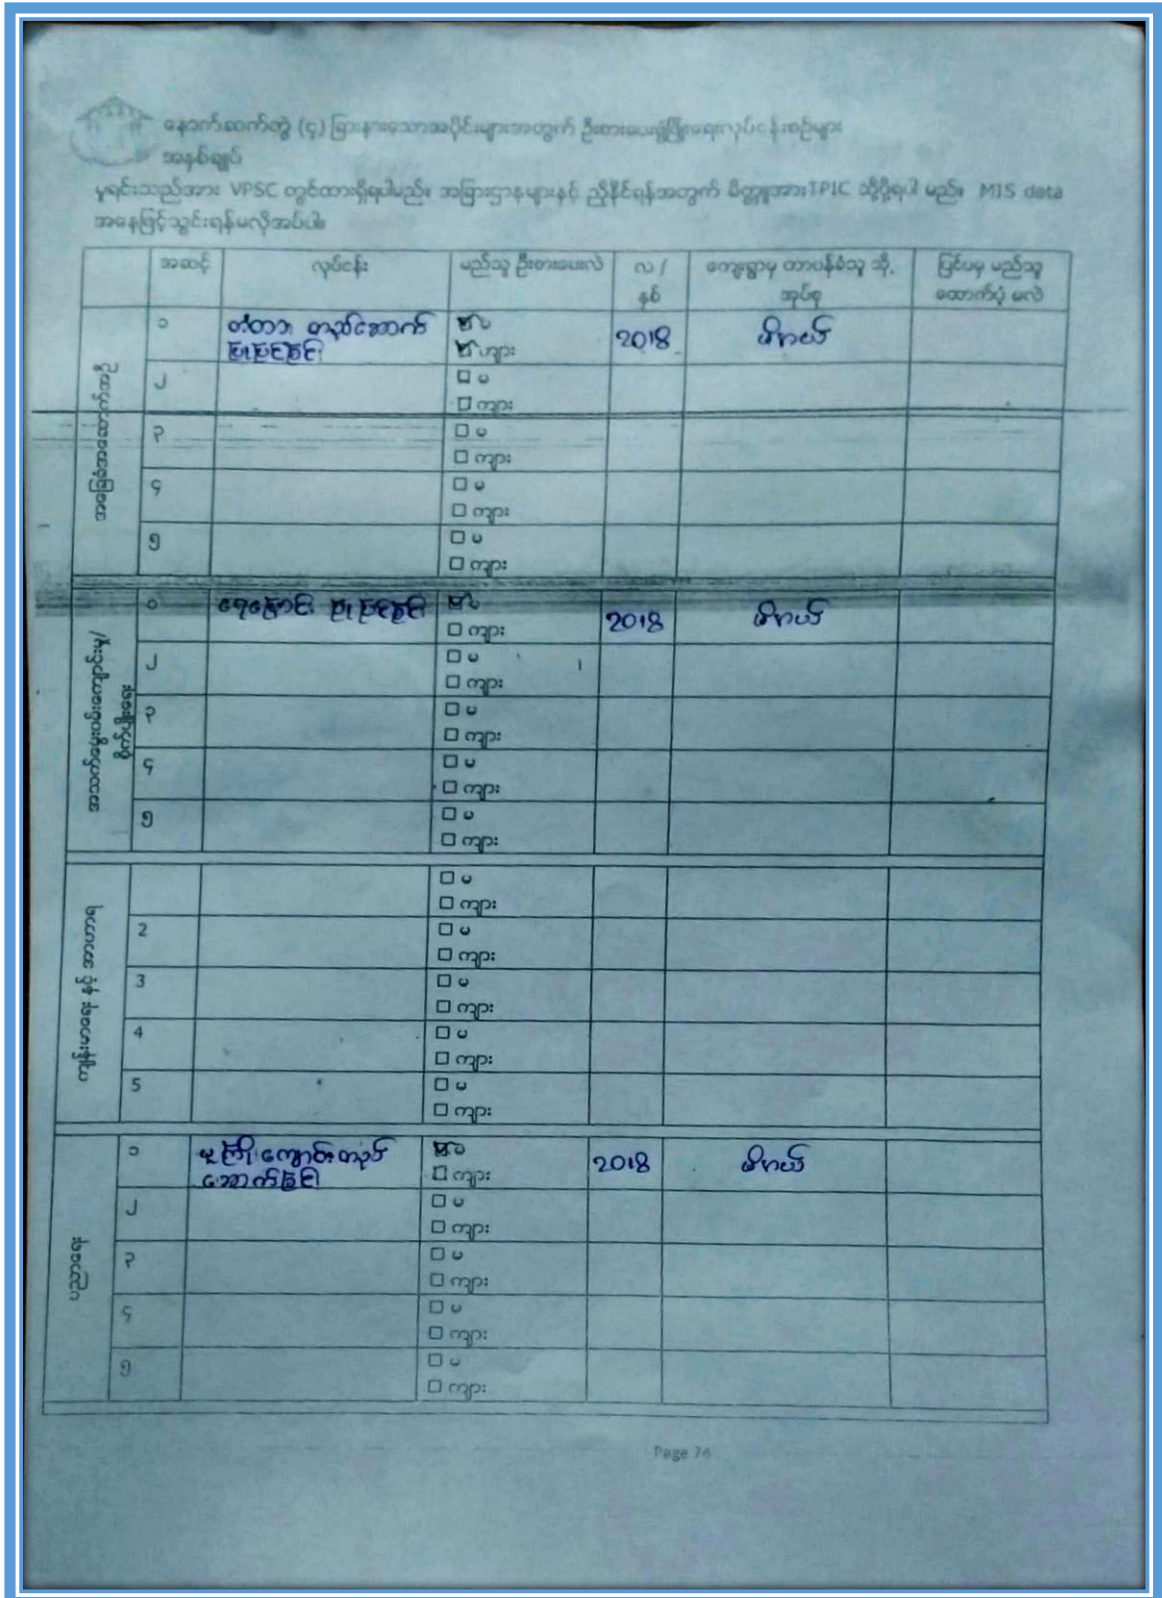 နောက်ဆက်တွဲ (၄) ခြားနားသောအပိုင်းများအတွက် ဦးစားပေးဖွံ့ဖြိုးရေးလုပ်ငန်းစဉ်များ
အနှစ်ချုပ်
မူရင်းသည်အား VPSC တွင်ထားရှိရပါမည်။ အခြားဌာနများနှင့် ညှိနှိုင်ရန်အတွက် မိတ္တူအားTPIC သို့ပို့ရပါ မည်။ MIS data
အနေဖြင့်သွင်းရန်မလိုအပ်ပါ။
အဆင့် လုပ်ငန်း မည်သူ ဦးစားပေးလဲ လ / နှစ် ကျေးရွာမှ တာဝန်ခံသူ သို့. အုပ်စု ပြင်ပမှ မည်သူ ထောက်ပံ့ မလဲ
အခြေခံအဆောက်အဦ
၁ တံတား တည်ဆောက် ပြုပြင်ခြင်း မ ကျား 2018 ဖိုဟယ်
၂ မ ကျား
၃ မ ကျား
၄ မ ကျား
၅ မ ကျား
၁ ရေမြောင်း ပြုပြင်ခြင်း မ ကျား 2018 ဖိုဟယ်
၂ မ ကျား
၃ မ ကျား
၄ မ ကျား
၅ မ ကျား
ကျန်းမာရေး နှင့် အာဟာရ
မ ကျား
2 မ ကျား
3 မ ကျား
4 မ ကျား
5 မ ကျား
ပညာရေး
၁ မူကြိုကျောင်း ဆောက်ခြင်း မ ကျား 2018 ဖိုဟယ်
၂ မ ကျား
၃ မ ကျား
၄ မ ကျား
၅ မ ကျား
Page 74